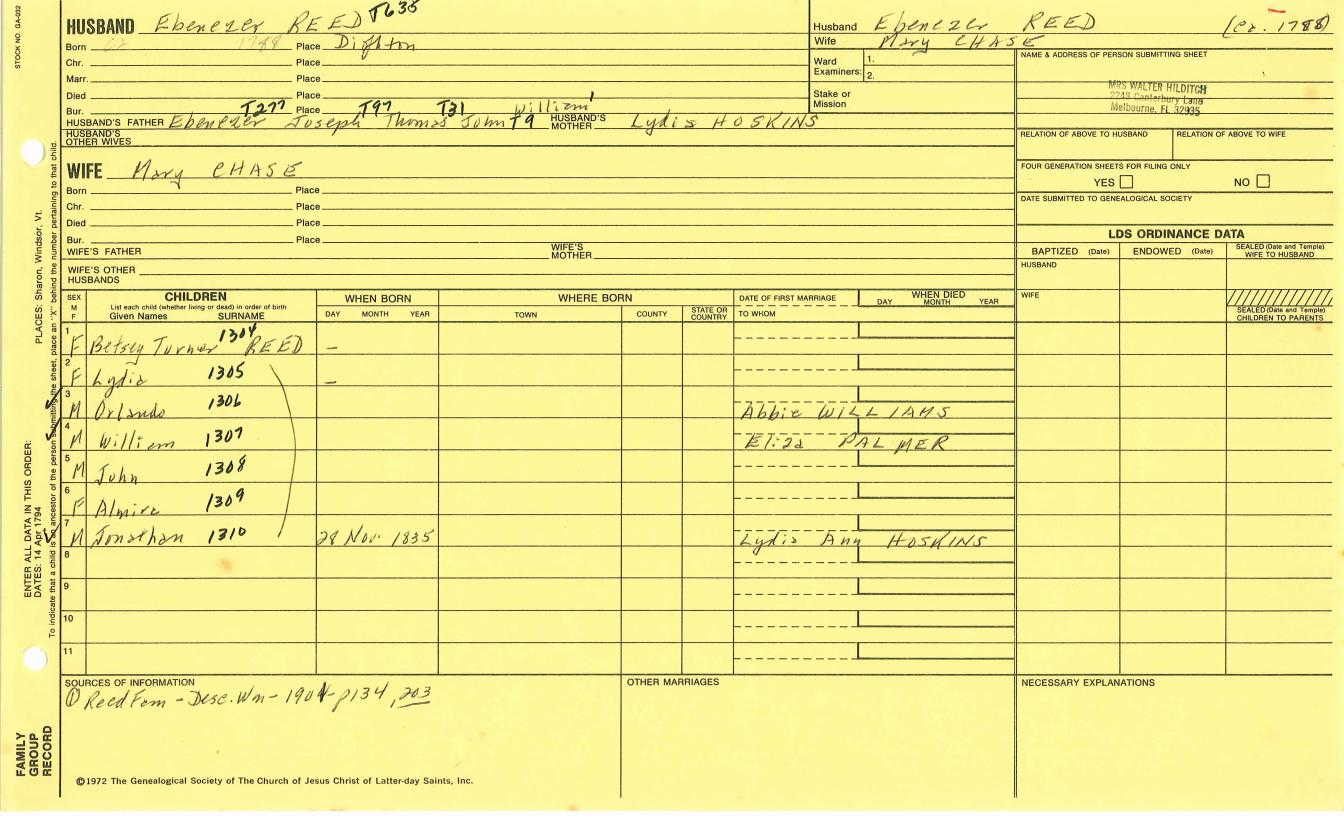 STOCK NO. GA-092
HUSBAND Ebenezer REED T635
Born ca 1788 Place Dighton
Chr. Place
Marr. Place
Died Place
Bur. Place
T277 T97 T31 William'
HUSBAND'S FATHER Ebenezer Joseph Thomas John T9 HUSBAND'S MOTHER Lydia HOSKINS
HUSBAND'S OTHER WIVES
Husband Ebenezer REED (Ca. 1788)
Wife Mary CHASE
Ward Examiners: 1.
2.
Stake or Mission
NAME & ADDRESS OF PERSON SUBMITTING SHEET
MRS WALTER HILDITCH
2243 Canterbury Lane
Melbourne, FL 32935
RELATION OF ABOVE TO HUSBAND RELATION OF ABOVE TO WIFE
FOUR GENERATION SHEETS FOR FILING ONLY
YES NO
DATE SUBMITTED TO GENEALOGICAL SOCIETY
WIFE Mary CHASE
Born Place
Chr. Place
Died Place
Bur. Place
WIFE'S FATHER WIFE'S MOTHER
WIFE'S OTHER HUSBANDS
LDS ORDINANCE DATA
BAPTIZED (Date) ENDOWED (Date) SEALED (Date and Temple) WIFE TO HUSBAND
HUSBAND
WIFE
SEALED (Date and Temple) CHILDREN TO PARENTS
SEX M F CHILDREN List each child (whether living or dead) in order of birth Given Names SURNAME WHEN BORN DAY MONTH YEAR WHERE BORN TOWN COUNTY STATE OR COUNTRY DATE OF FIRST MARRIAGE TO WHOM WHEN DIED DAY MONTH YEAR
1 F Betsey Turner 1304 REED –
2 F Lydia 1305 –
3 M Orlando 1306 Abbie WILLIAMS
4 M William 1307 Eliza PALMER
5 M John 1308
6 F Almira 1309
7 M Jonathan 1310 28 Nov. 1835 Lydia Ann HOSKINS
8
9
10
11
SOURCES OF INFORMATION
① Reed Fam – Desc. Wm – 1901 – p134, 203
OTHER MARRIAGES
NECESSARY EXPLANATIONS
©1972 The Genealogical Society of The Church of Jesus Christ of Latter-day Saints, Inc.
FAMILY GROUP RECORD
ENTER ALL DATA IN THIS ORDER:
DATES: 14 Apr 1794 PLACES: Sharon, Windsor, Vt.
To indicate that a child is an ancestor of the person submitting the sheet, place an "X" behind the number pertaining to that child.